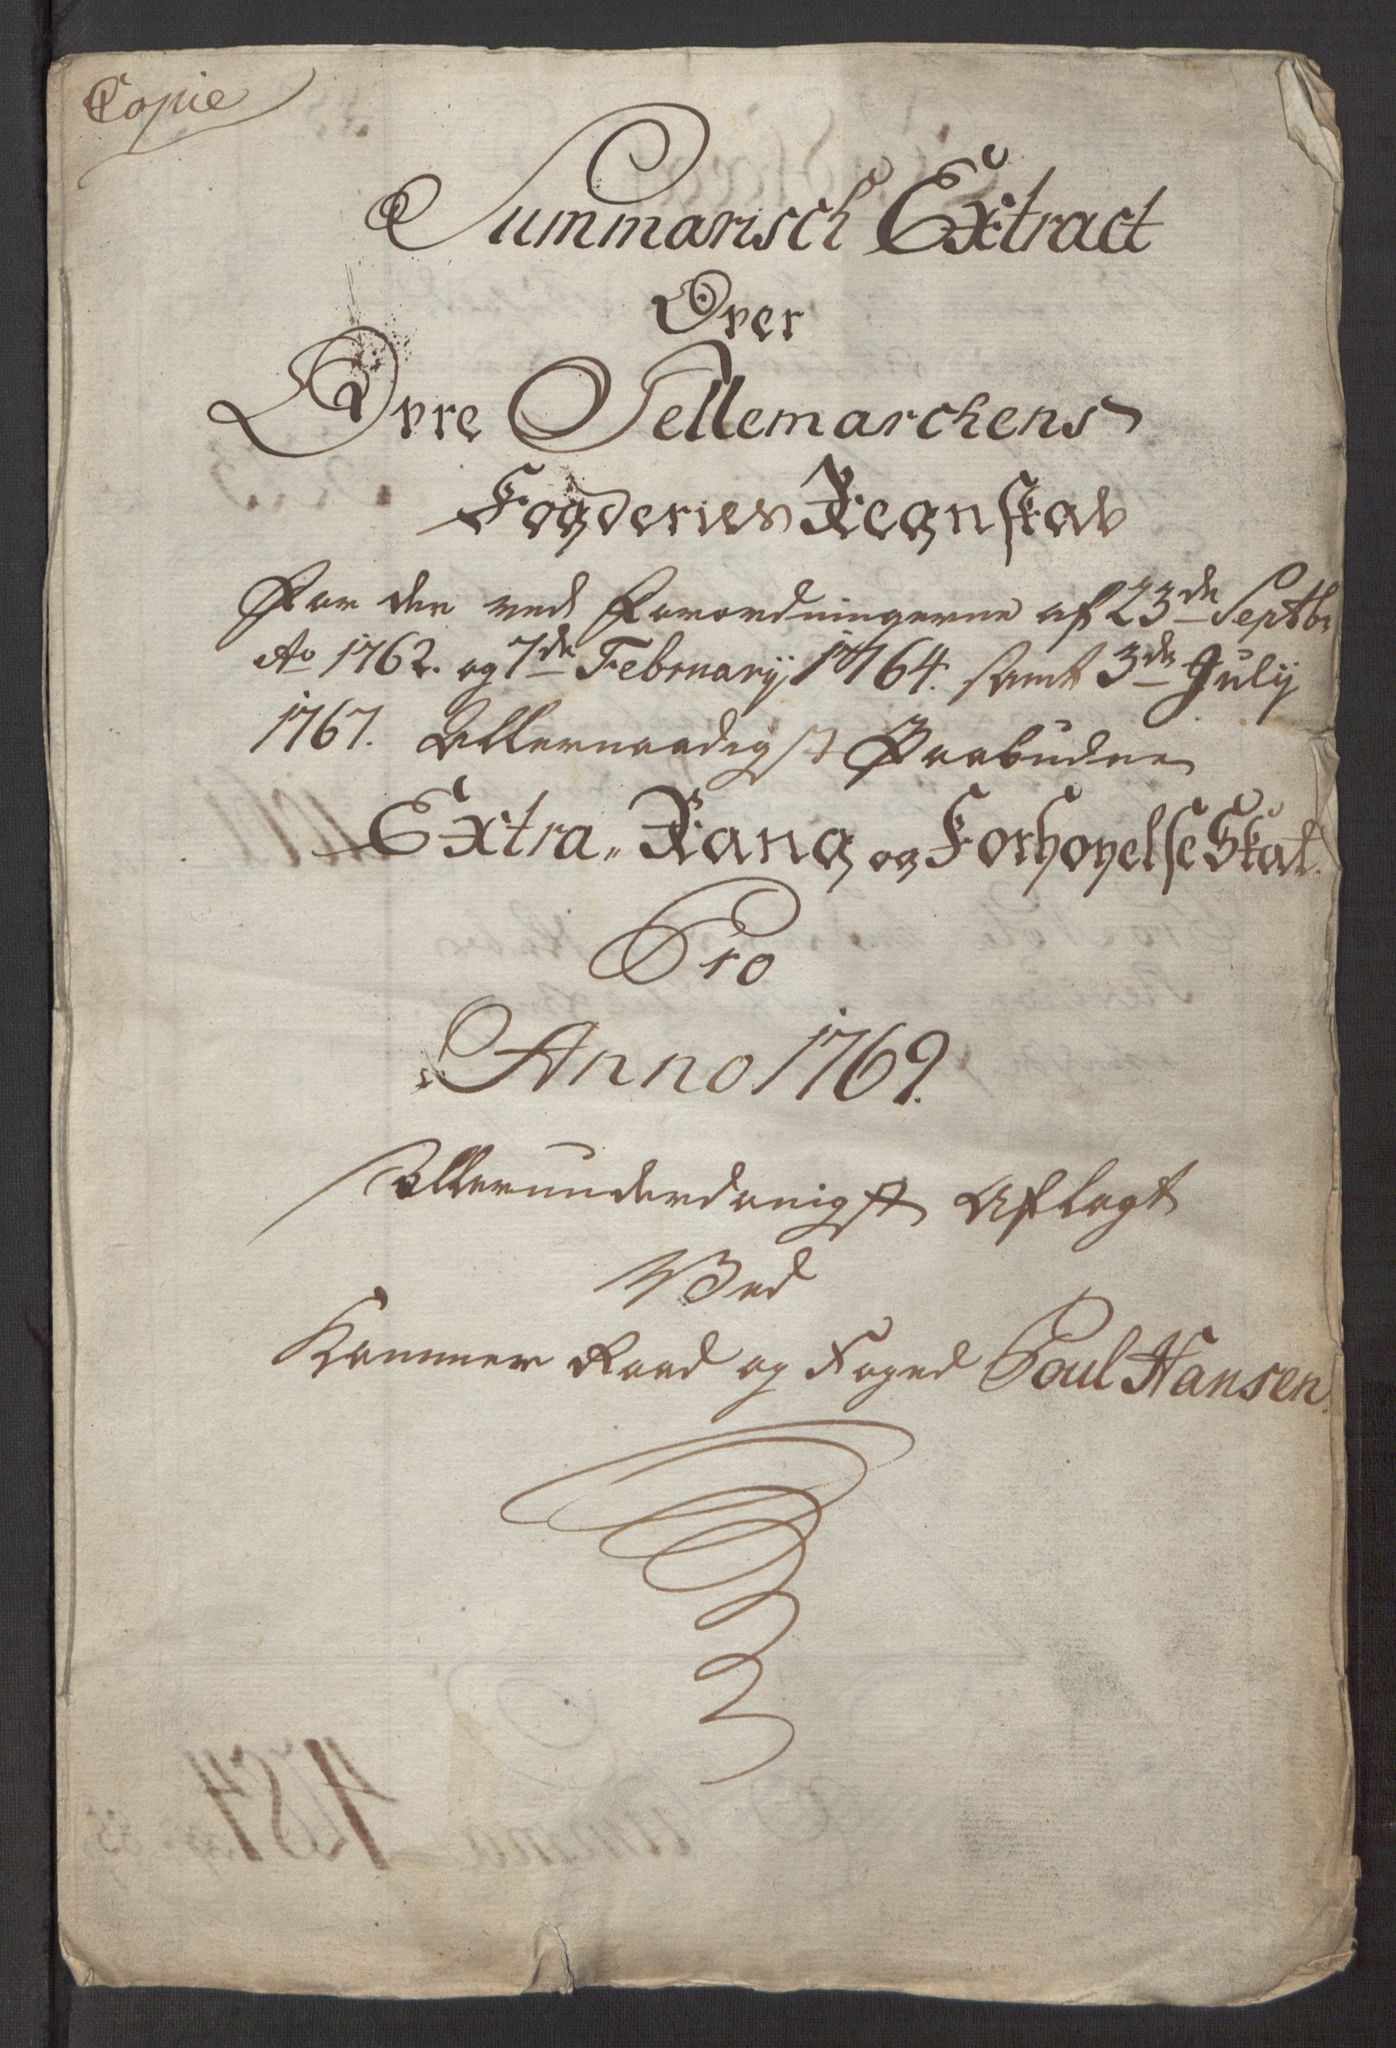 Copie
Summarisch Extract
Over
Øvre Tellemarchens
Fogderies Regnskab
For den ved Forordningerne af 23de Septbr
Ao 1762. og 7de Februarij 1764. samt 3de Julij
1767. Allernaadigst Paabudne
Extra, Rang og Forhøyelse Skat.
Pro
Anno 1769.
Allerunderdanigst Aflagt
Ved
Kammer Raad og Foged Poul Hansen.